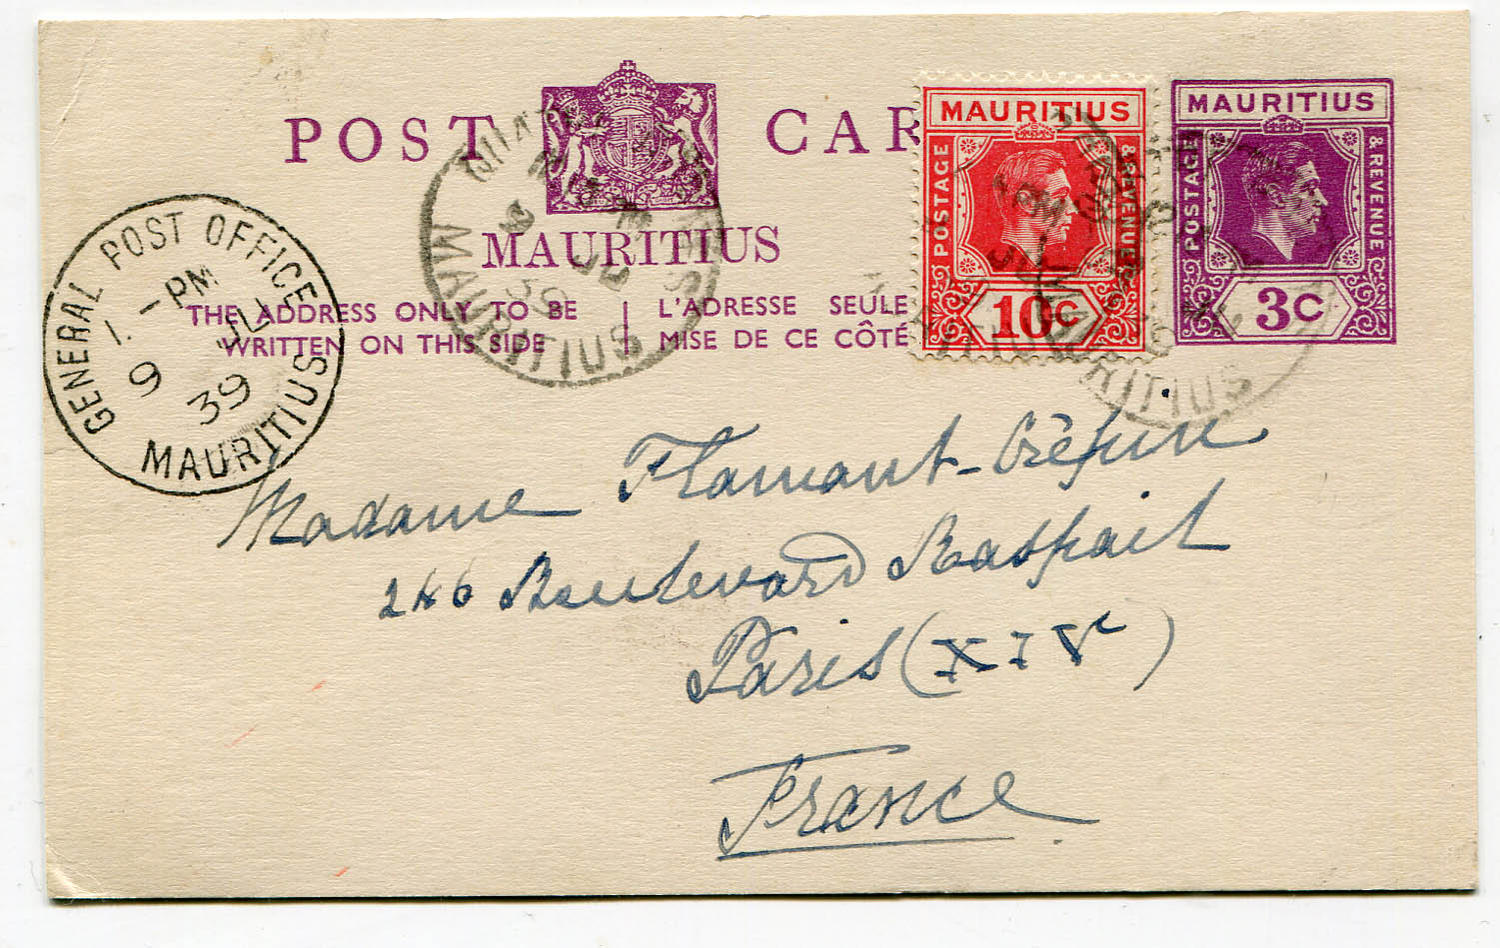 POST CAR
MAURITIUS
THE ADDRESS ONLY TO BE
WRITTEN ON THIS SIDE
L'ADRESSE SEULE
MISE DE CE CÔTÉ
MAURITIUS
POSTAGE
& REVENUE
10c
MAURITIUS
POSTAGE
& REVENUE
3c
GENERAL POST OFFICE
1 - PM
9 JL
39
MAURITIUS
MAURITIUS
Madame Flamant-Crépin
246 Boulevard Raspail
Paris (XIVe)
France